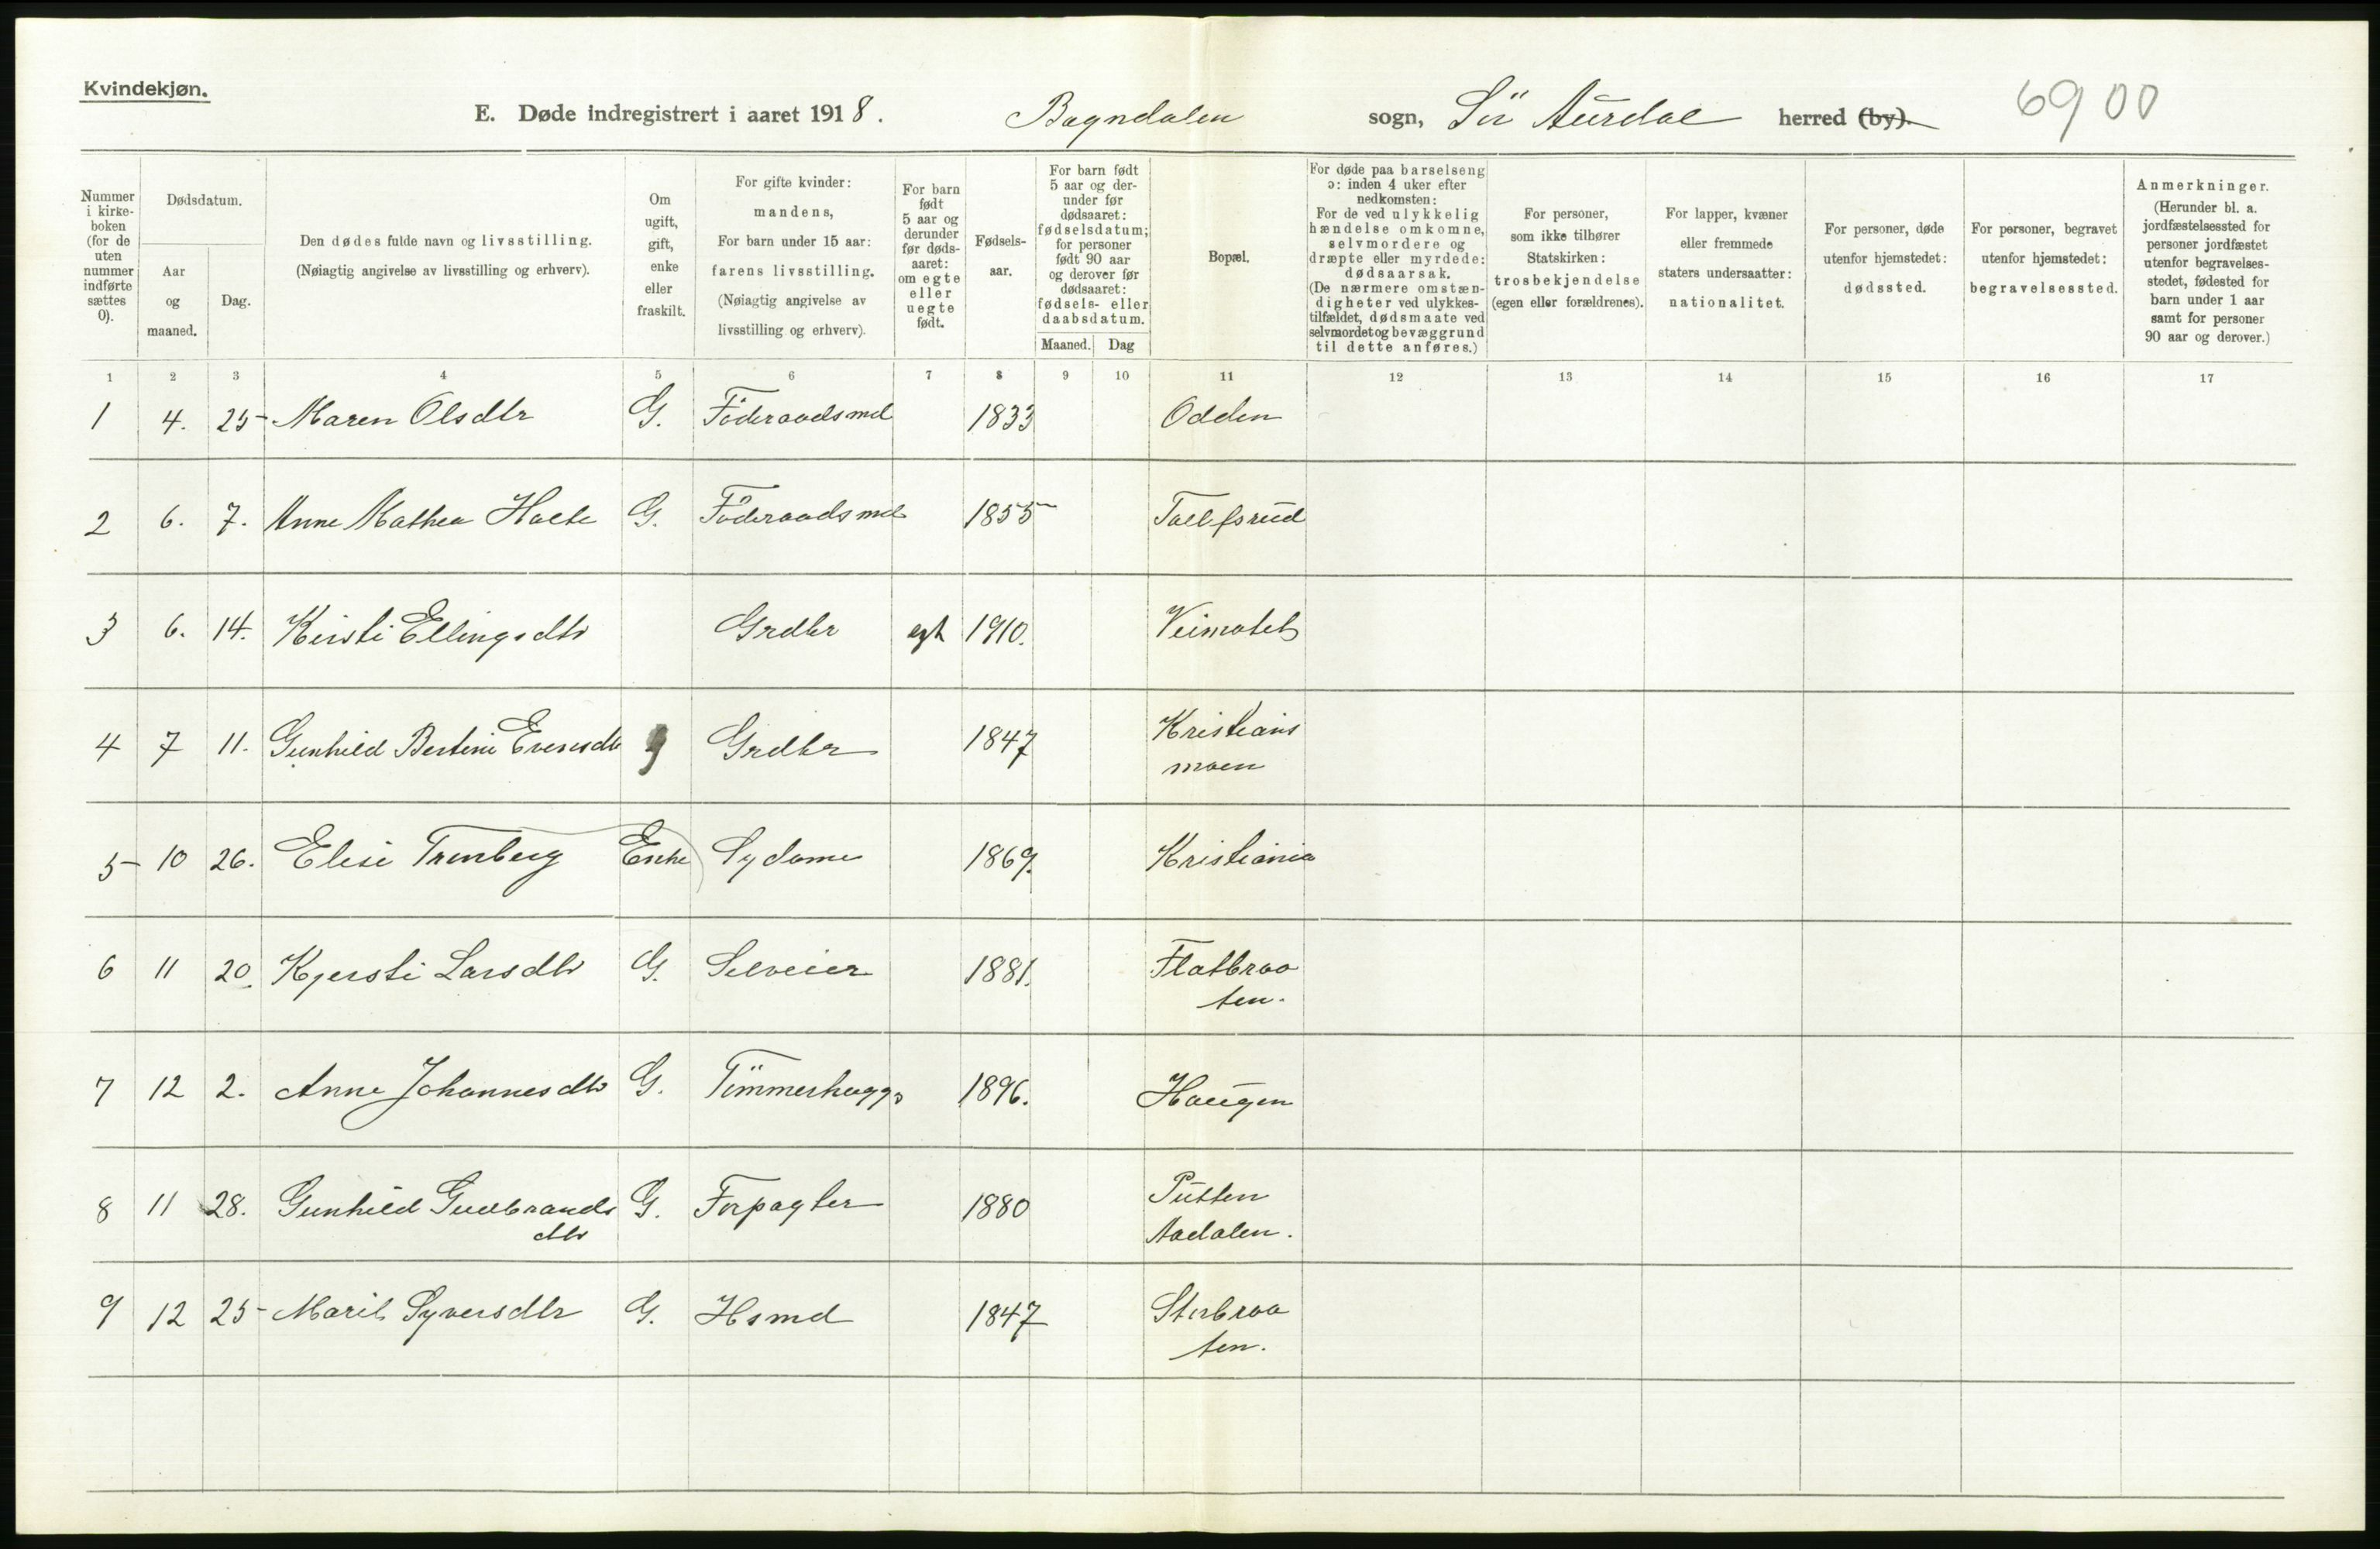 Kvindekjøn.
E. Døde indregistrert i aaret 1918. Bagndalen sogn, Sör Aurdal herred (by). 6900
Nummer i kirkeboken (for de uten nummer indførte sættes 0).
Dødsdatum.
Aar og maaned.
Dag.
Den dødes fulde navn og livsstilling.
(Nøiagtig angivelse av livsstilling og erhverv).
Om ugift, gift, enke eller fraskilt.
For gifte kvinder: mandens,
For barn under 15 aar: farens livsstilling.
(Nøiagtig angivelse av livsstilling og erhverv).
For barn født 5 aar og derunder før dødsaaret: om egte eller uegte født.
Fødselsaar.
For barn født 5 aar og derunder før dødsaaret: fødselsdatum; for personer født 90 aar og derover før dødsaaret: fødsels- eller daabsdatum.
Maaned. Dag
Bopæl.
For døde paa barselseng ɔ: inden 4 uker efter nedkomsten:
For de ved ulykkelig hændelse omkomne, selvmordere og dræpte eller myrdede: dødsaarsak.
(De nærmere omstændigheter ved ulykkestilfældet, dødsmaate ved selvmordet og bevæggrund til dette anføres.)
For personer, som ikke tilhører Statskirken: trosbekjendelse (egen eller forældrenes).
For lapper, kvæner eller fremmede staters undersaatter: nationalitet.
For personer, døde utenfor hjemstedet: dødssted.
For personer, begravet utenfor hjemstedet: begravelsessted.
Anmerkninger.
(Herunder bl. a. jordfæstelsessted for personer jordfæstet utenfor begravelsesstedet, fødested for barn under 1 aar samt for personer 90 aar og derover.)
1 2 3 4 5 6 7 8 9 10 11 12 13 14 15 16 17
1 4. 25 Maren Olsdtr G. Föderaadsmd 1833 Odden
2 6. 7. Anne Mathea Holte G. Föderaadsmd 1855 Tollefsrud
3 6. 14. Kirsti Ellingsdtr Grdbr egt 1910. Veimolet
4 7 11. Gunhild Bertine Evensdtr g Grdbr 1847 Kristians
moen
5 10 26. Elise Tronberg Enke Sydame 1869. Kristiania
6 11 20. Kjersti Larsdtr G. Selveier 1881. Flatbraa
ten.
7 12 2. Anne Johannesdtr G. Tömmerhugger 1896. Haugen
8 11 28. Gunhild Gudbrands G. Forpagter 1880 Putten
dtr Aadalen.
9 12 25 Marit Syversdtr G. Hsmd 1847 Storbraa
ten.